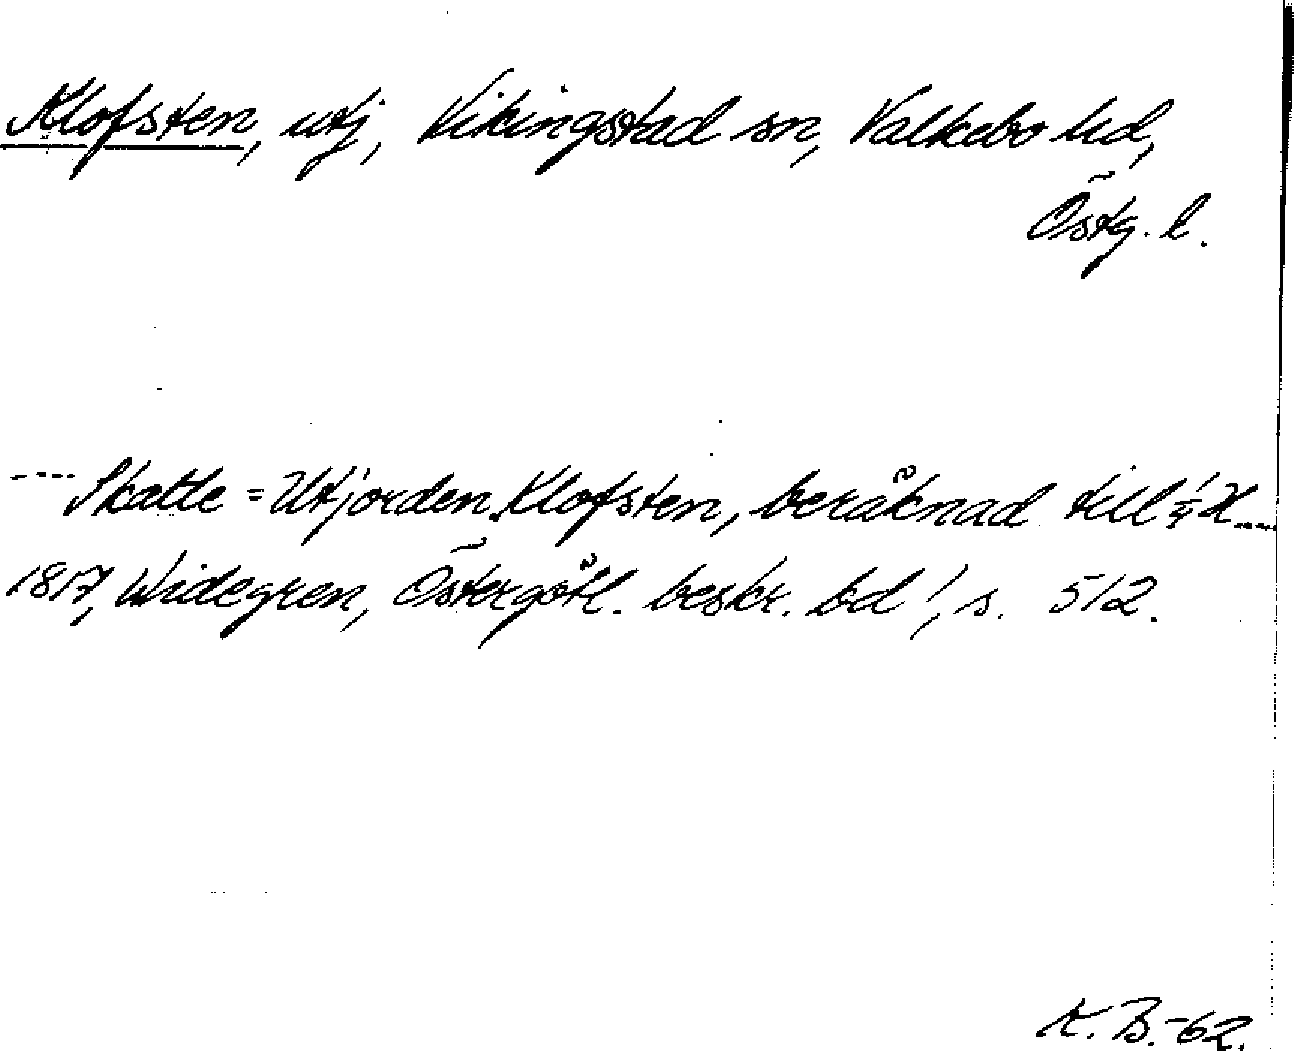 Klofsten, utj, Vikingstad sn, Valkebo hd,
Östg. l.
---- Skatte = Utjorden Klofsten, beräknad till ¼ H ----
1817, Widegren, Östergötl. beskr. bd 1, s. 512.
K. B. -62.